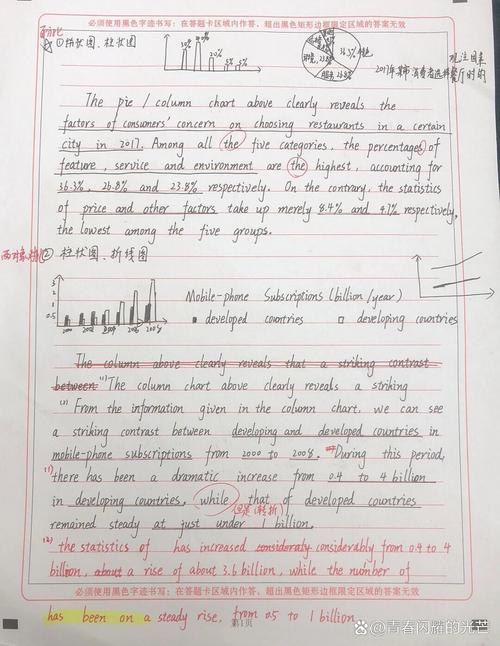 必须使用黑色字迹书写:在答题卡区域内作答,超出黑色矩形边框限定区域的答案无效
百分比
① 饼状图、柱状图
30% 30%
5% 5%
36.3% 特色
环境 23.8%
服务 26.8%
2017年某市消费者选择餐厅时的
关注因素
The pie / column chart above clearly reveals the
factors of consumers' concern on choosing restaurants in a certain
city in 2017. Among all the five categories, the percentages of
feature, service and environment are the highest, accounting for
36.3%, 26.8% and 23.8% respectively. On the contrary, the statistics
of price and other factors take up merely 8.4% and 4.7% respectively,
the lowest among the five groups.
② 柱状图、折线图
3
2
1
0.5
2000 2002 2004 2006 2008
Mobile-phone Subscriptions (billion / year)
developed countries developing countries
The column above clearly reveals that a striking contrast
between (1) The column chart above clearly reveals a striking
(2) From the information given in the column chart, we can see
a striking contrast between developing and developed countries in
mobile-phone subscriptions from 2000 to 2008. During this period,
(1) there has been a dramatic increase from 0.4 to 4 billion
in developing countries, while that of developed countries
但是(转折)
remained steady at just under 1 billion.
(2) the statistics of has increased consideraly considerably from 0.4 to 4
billion, about a rise of about 3.6 billion, while the number of
必须使用黑色字迹书写:在答题卡区域内作答,超出黑色矩形边框限定区域的答案无效
has been on a steady rise, from 0.5 to 1 billion
第1页
@青春闪耀的光芒